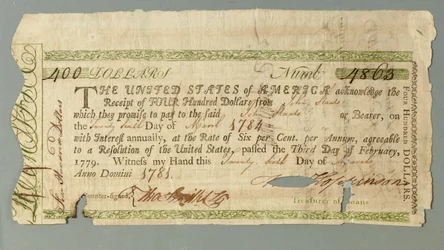 400 DOLLARS Numb. 4863
THE UNITED STATES of AMERICA acknowledge the
Receipt of FOUR Hundred Dollars from
which they promise to pay to the said or Bearer, on
the Day of 1784
with Interest annually, at the Rate of Six per Cent. per Annum, agreeable
to a Resolution of the United States, passed the Third Day of February,
1779. Witness my Hand this Day of
Anno Domini 1781.
Counter-signed, Hopkinson
Treasurer of Loans
FOUR HUNDRED DOLLARS.